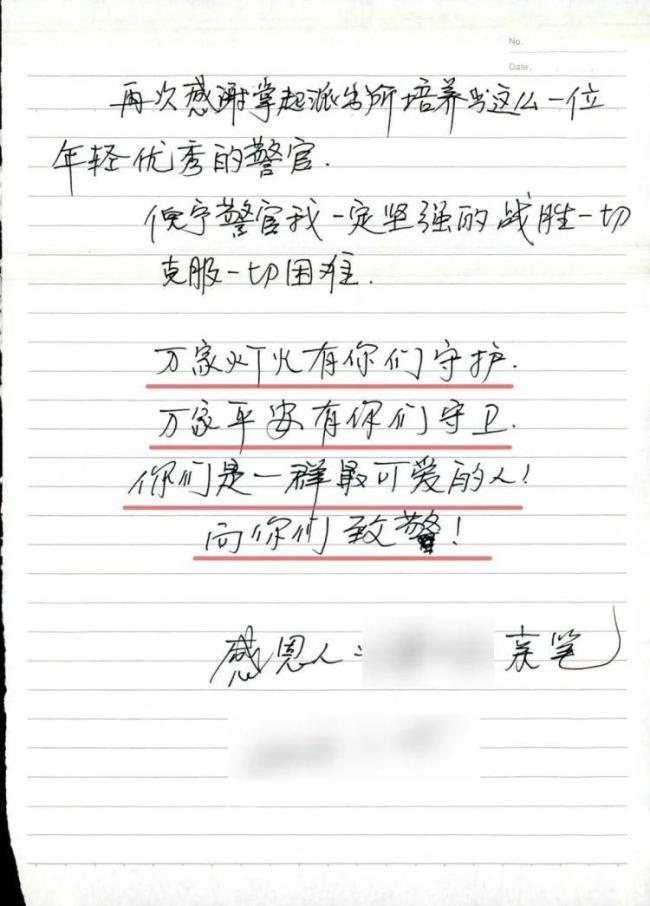 No.
Date.
再次感谢掌起派出所培养出这么一位
年轻优秀的警官.
倪宁警官我一定坚强的战胜一切
克服一切困难.
万家灯火有你们守护.
万家平安有你们守卫.
你们是一群最可爱的人!
向你们致警!
感恩人:
亲笔